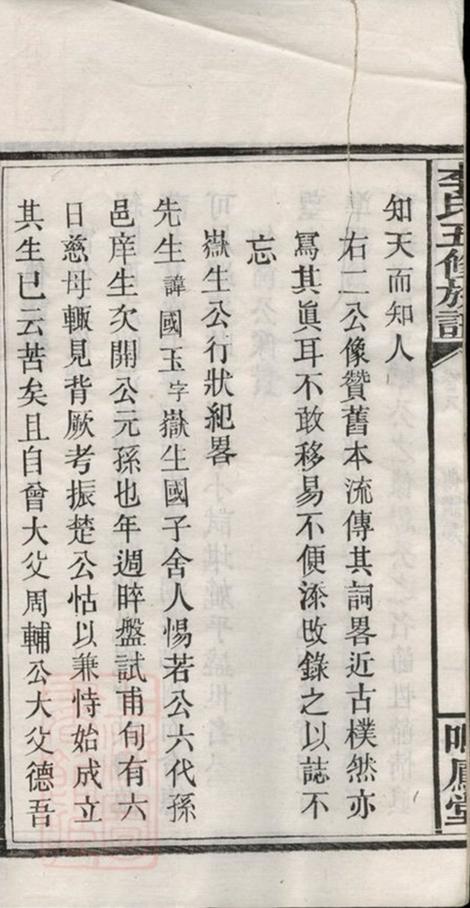 李氏五修族譜
鳳堂
知天而知人
右二公像贊舊本流傳其詞畧近古樸然亦
寫其眞耳不敢移易不便添改錄之以誌不
忘
嶽生公行狀紀畧
先生諱國玉字嶽生國子舍人惕若公六代孫
邑庠生欠開公元孫也年週晬盤試甫旬有六
日慈母輙見背厥考振楚公怙以兼恃始成立
其生已云苦矣且自曾大父周輔公大父德吾